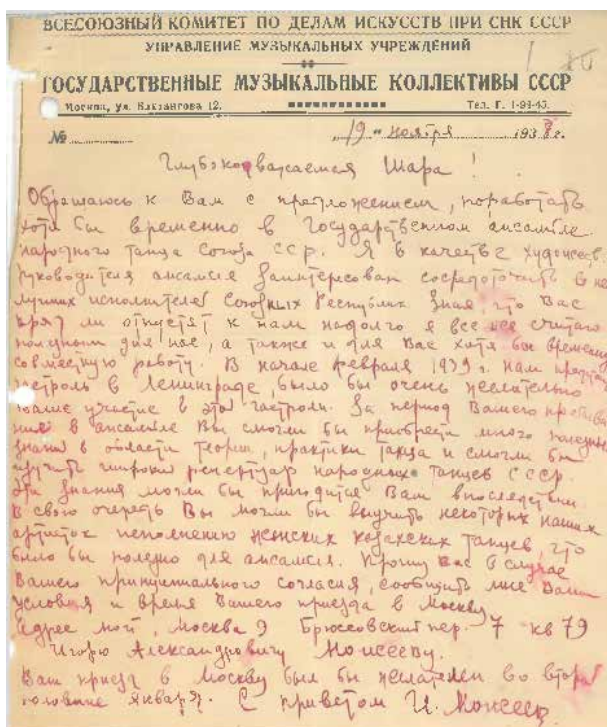 ВСЕСОЮЗНЫЙ КОМИТЕТ ПО ДЕЛАМ ИСКУССТВ ПРИ СНК СССР
УПРАВЛЕНИЕ МУЗЫКАЛЬНЫХ УЧРЕЖДЕНИЙ
ГОСУДАРСТВЕННЫЕ МУЗЫКАЛЬНЫЕ КОЛЛЕКТИВЫ СССР
Москва, ул. Вахтангова 12. Тел. Г. 1-94-45.
№ "19" ноября 1938 г.
Глубокоуважаемая Шара!
Обращаюсь к Вам с предложением, поработать
хотя бы временно в Государственном ансамбле
народного танца Союза ССР. Я в качестве художеств.
руководителя ансамбля заинтересован сосредоточить в не
лучших исполнителей Союзных Республик Зная, что Вас
вряд ли отпустят к нам надолго я все же считаю
полезным для нас, а также и для Вас хотя бы временную
совместную работу. В начале февраля 1939 г. нам
гастроль в Ленинграде, было бы очень желательно
Ваше участие в этой гастроли. За период Вашего пребыва
ния в ансамбле Вы смогли бы приобрести много полезных
знаний в области теории, практики танца и смогли бы
изучить широкий репертуар народных танцев СССР.
Эти знания могли бы пригодится Вам впоследствии
В свою очередь Вы могли бы выучить некоторых наших
артисток исполнению женских казахских танцев, что
было бы полезно для ансамбля. Прошу Вас в случае
Вашего принципиального согласия, сообщить мне Ваши
условия и время Вашего приезда в Москву
Адрес мой, Москва 9 Брюссовский пер. 7 кв 79
Игорю Александровичу Моисееву.
Ваш приезд в Москву был бы желателен во второй
половине января. С приветом И. Моисеев